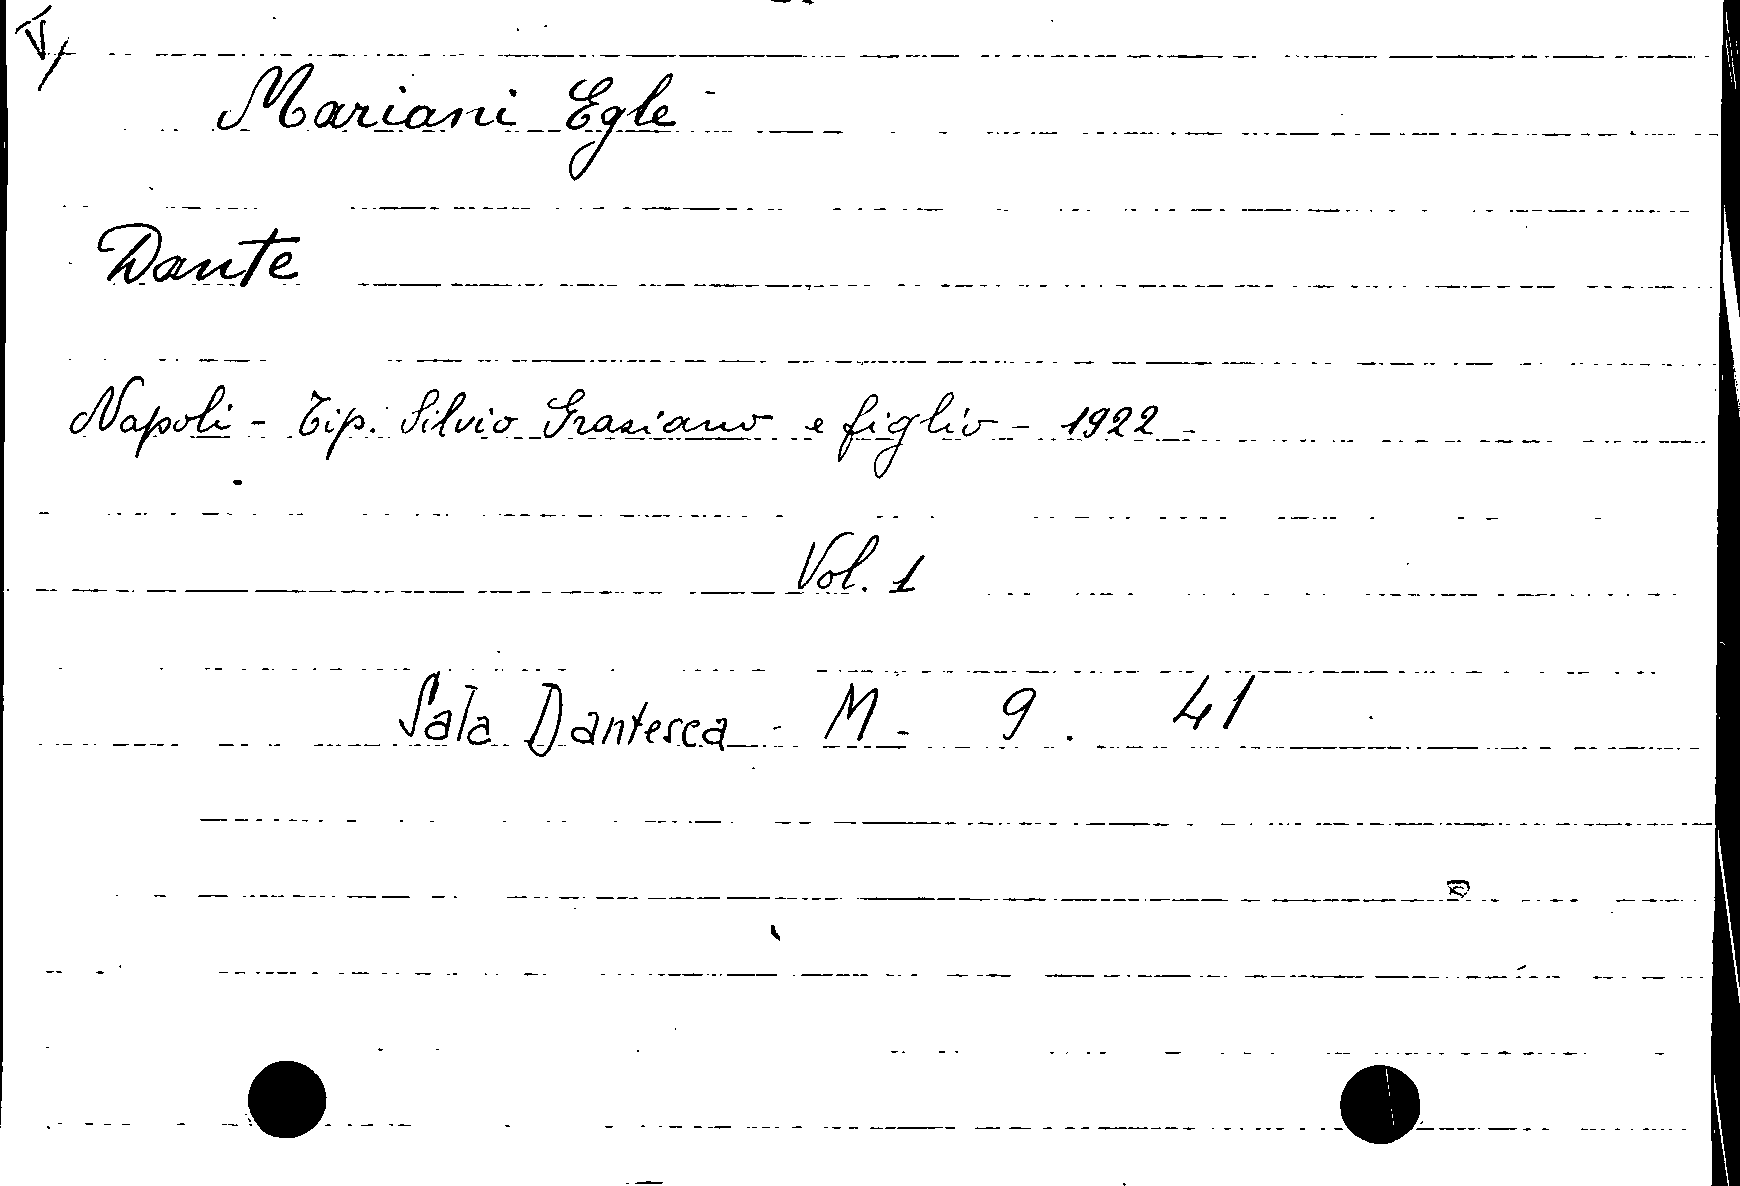 V/
Mariani Egle -
Dante
Napoli - Tip. Silvio Graziano e figlio - 1922 -
Vol. 1
Sala Dantesca - M - 9 . 41